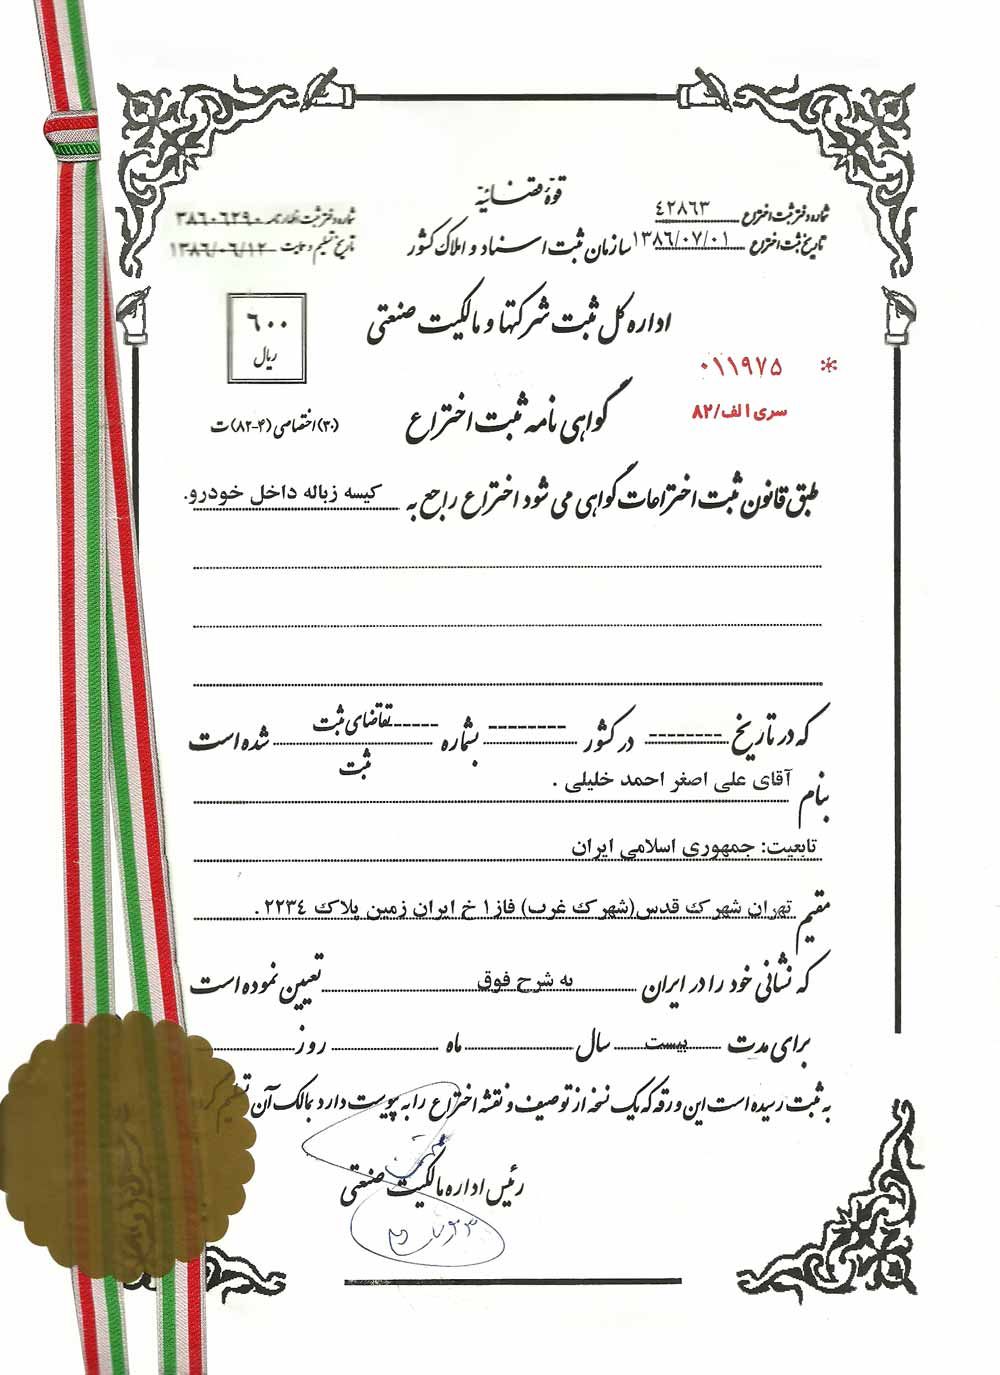 قوۀ قضائیه
شماره دفتر ثبت اختراع ٤٢٨٦٣
شماره دفتر ثبت اظهارنامه ٣٨٦٠٦٢٩٠
تاریخ ثبت اختراع ١٣٨٦/٠٧/٠١
سازمان ثبت اسناد و املاک کشور
تاریخ تسلیم و ثابت ١٣٨٦/٠٦/١٢
اداره کل ثبت شرکتها و مالکیت صنعتی
٦٠٠
ریال
* ٠١١٩٧٥
سری الف/٨٢
گواهی نامه ثبت اختراع
(٣٠) اختصاصی (٤-٨٢) ت
طبق قانون ثبت اختراعات گواهی می شود اختراع راجع به کیسه زباله داخل خودرو.
که در تاریخ -------- در کشور -------- بشماره ----- تقاضای ثبت شده است
ثبت
بنام آقای علی اصغر احمد خلیلی .
تابعیت: جمهوری اسلامی ایران
مقیم تهران شهرک قدس(شهرک غرب) فاز١ خ ایران زمین پلاک ٢٢٣٤.
که نشانی خود را در ایران به شرح فوق تعیین نموده است
برای مدت بیست سال ماه روز
به ثبت رسیده است این ورقه که یک نسخه از توصیف و نقشه اختراع را به پیوست دارد بمالک آن
رئیس اداره مالکیت صنعتی